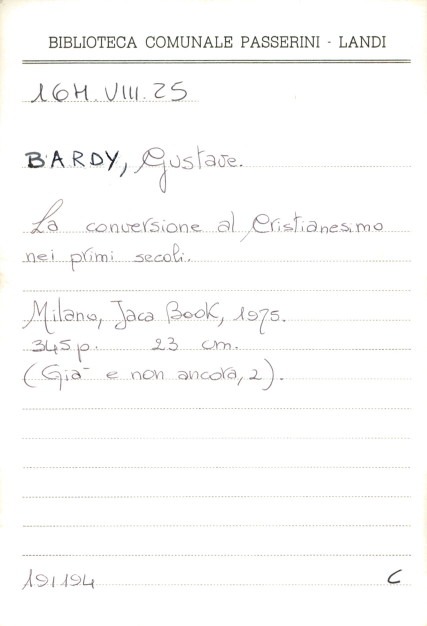 BIBLIOTECA COMUNALE PASSERINI - LANDI
16M.VIII.25
BARDY, Gustave.
La conversione al Cristianesimo
nei primi secoli.
Milano, Jaca Book, 1975.
345 p. 23 cm.
(Già e non ancora, 2).
191194 C